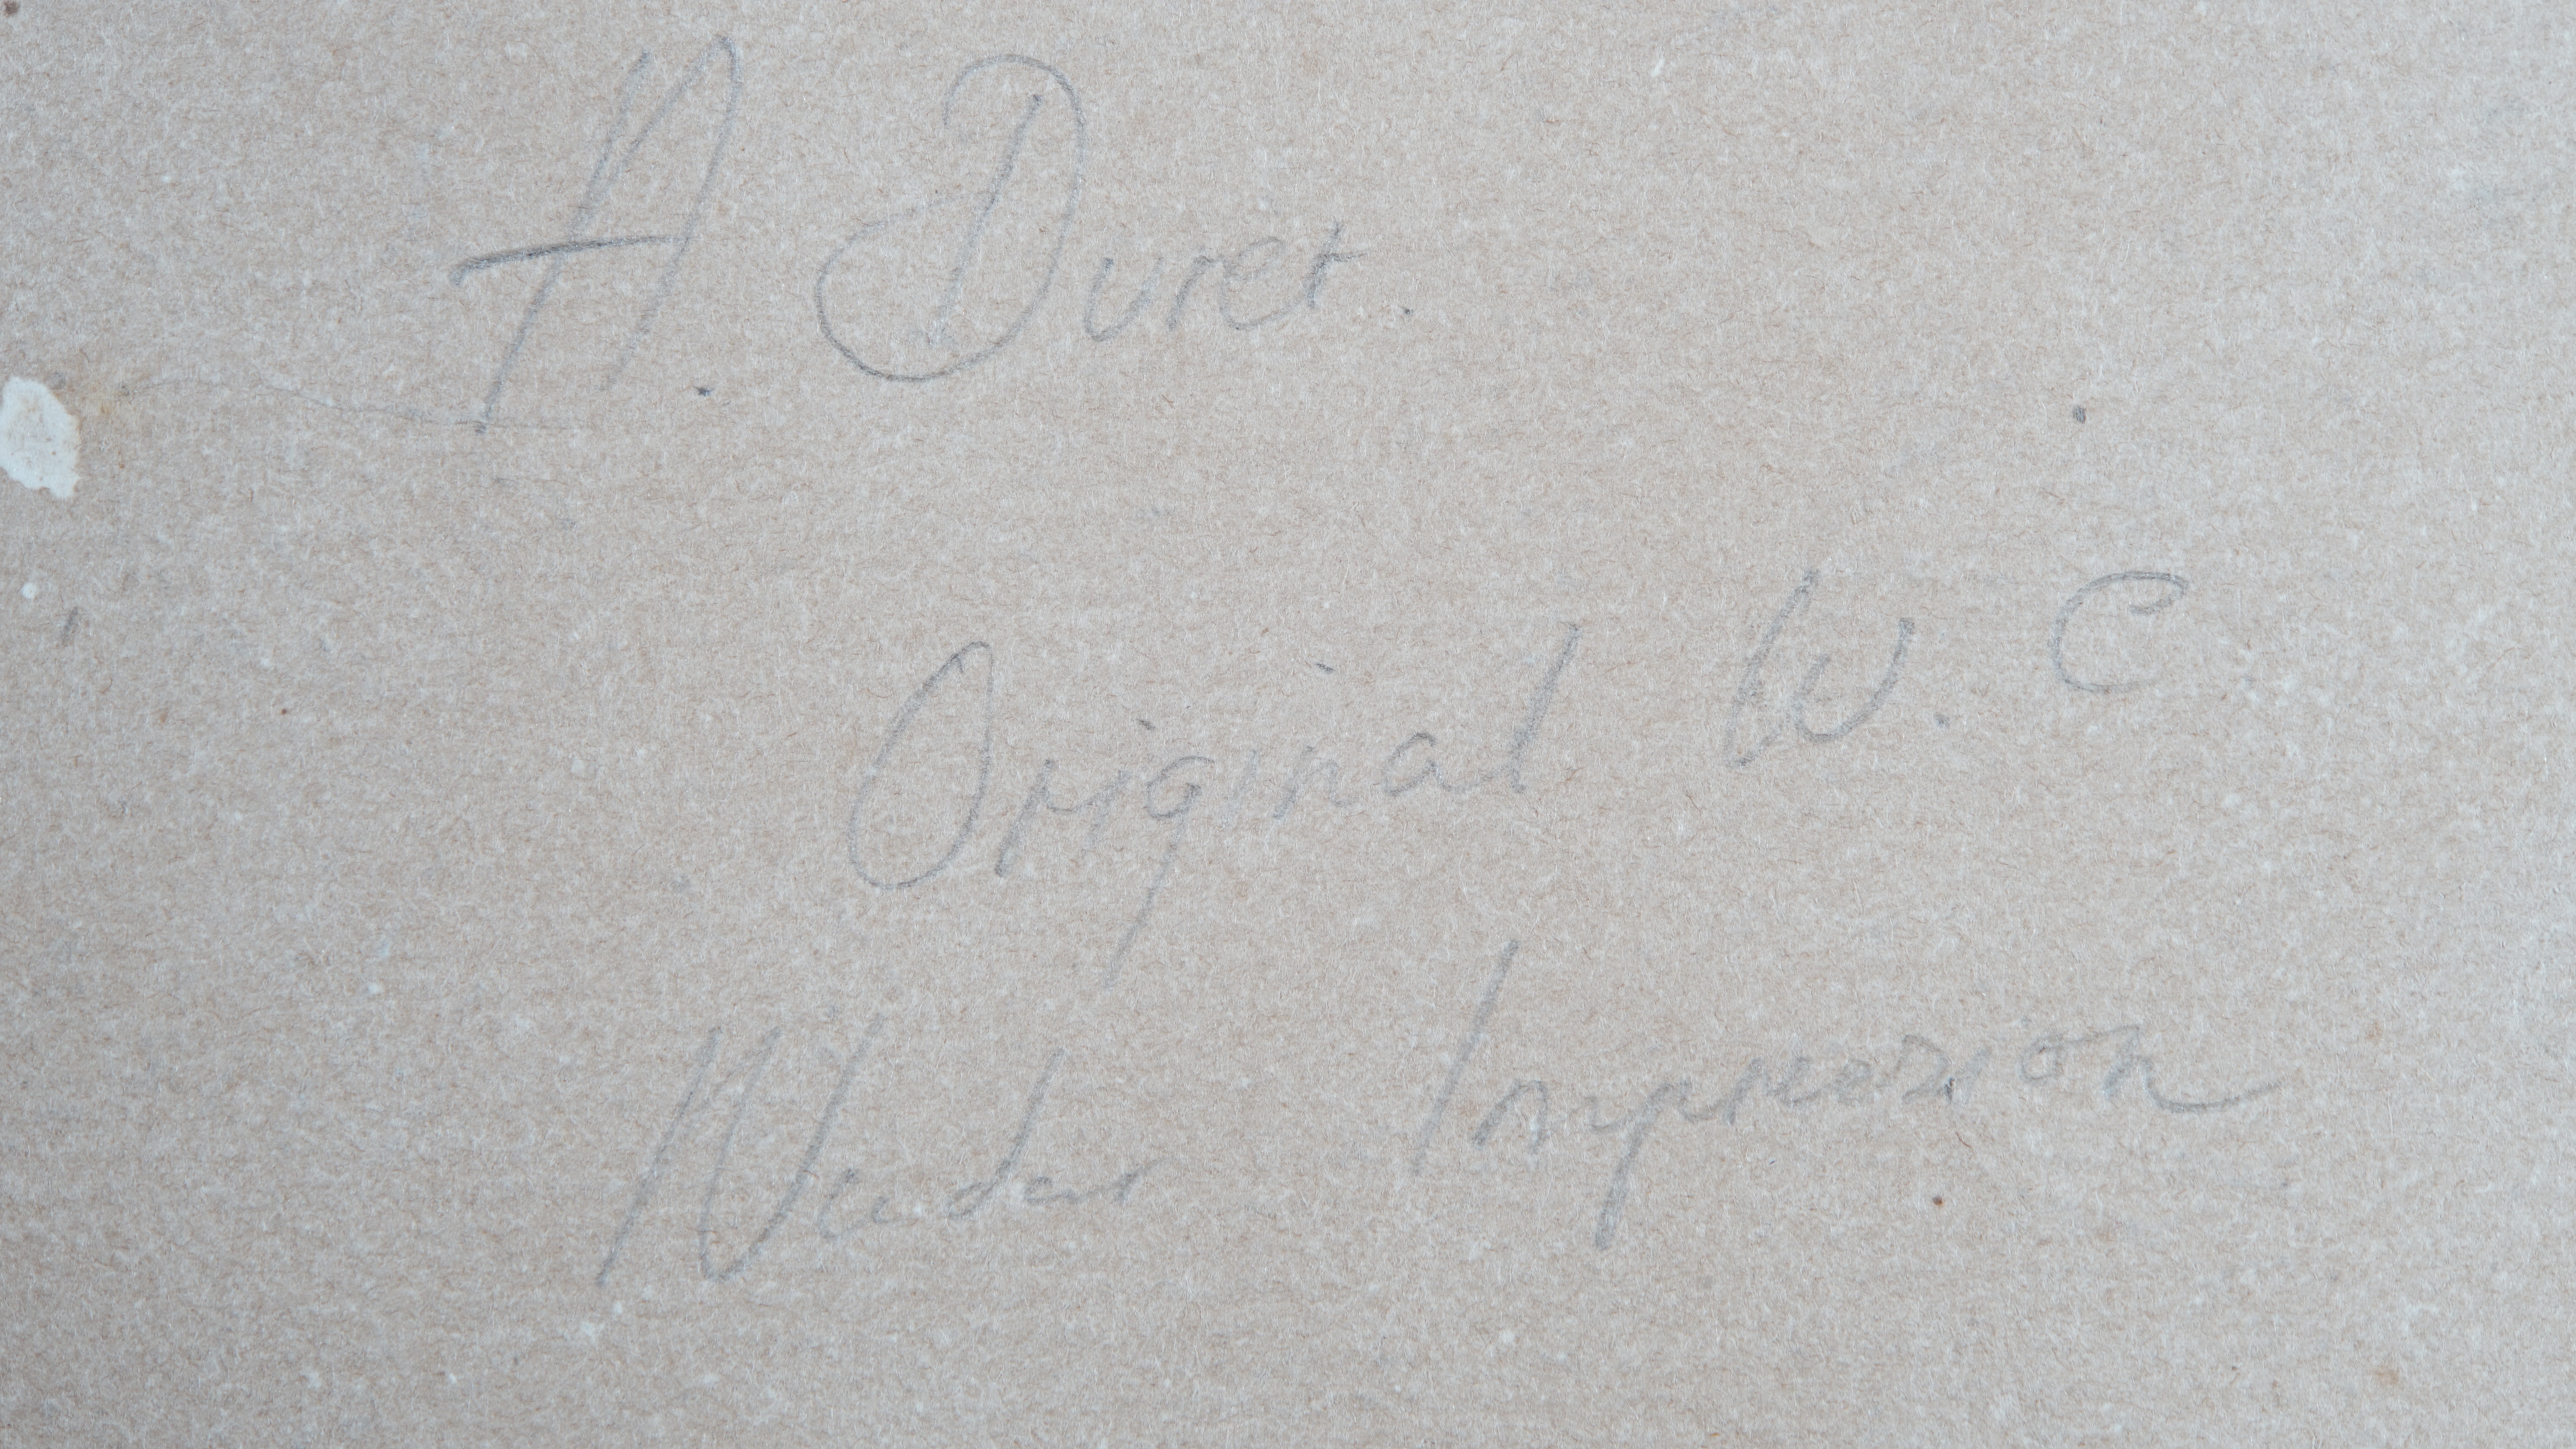 A. Duret.
Original W. C.
Impression